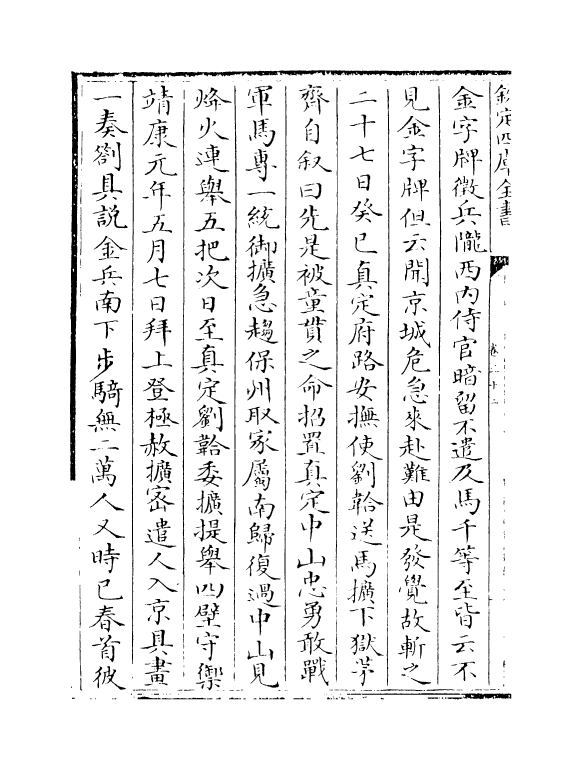 欽定四庫全書
金字牌徵兵隴西内侍官暗留不遣及馬千等至皆云不
見金字牌但云聞京城危急來赴難由是發覺故斬之
二十七日癸巳真定府路安撫使劉韐送馬擴下獄茅
齊自叙曰先是被童貫之命招置真定中山忠勇敢戰
軍馬專一統御擴急趨保州取家屬南歸復過中山見
烽火連舉五把次日至真定劉韐委擴提舉四壁守禦
靖康元年五月七日拜上登極赦擴密遣人入京具畫
一奏劄具説金兵南下步騎無二萬人又時已春首彼